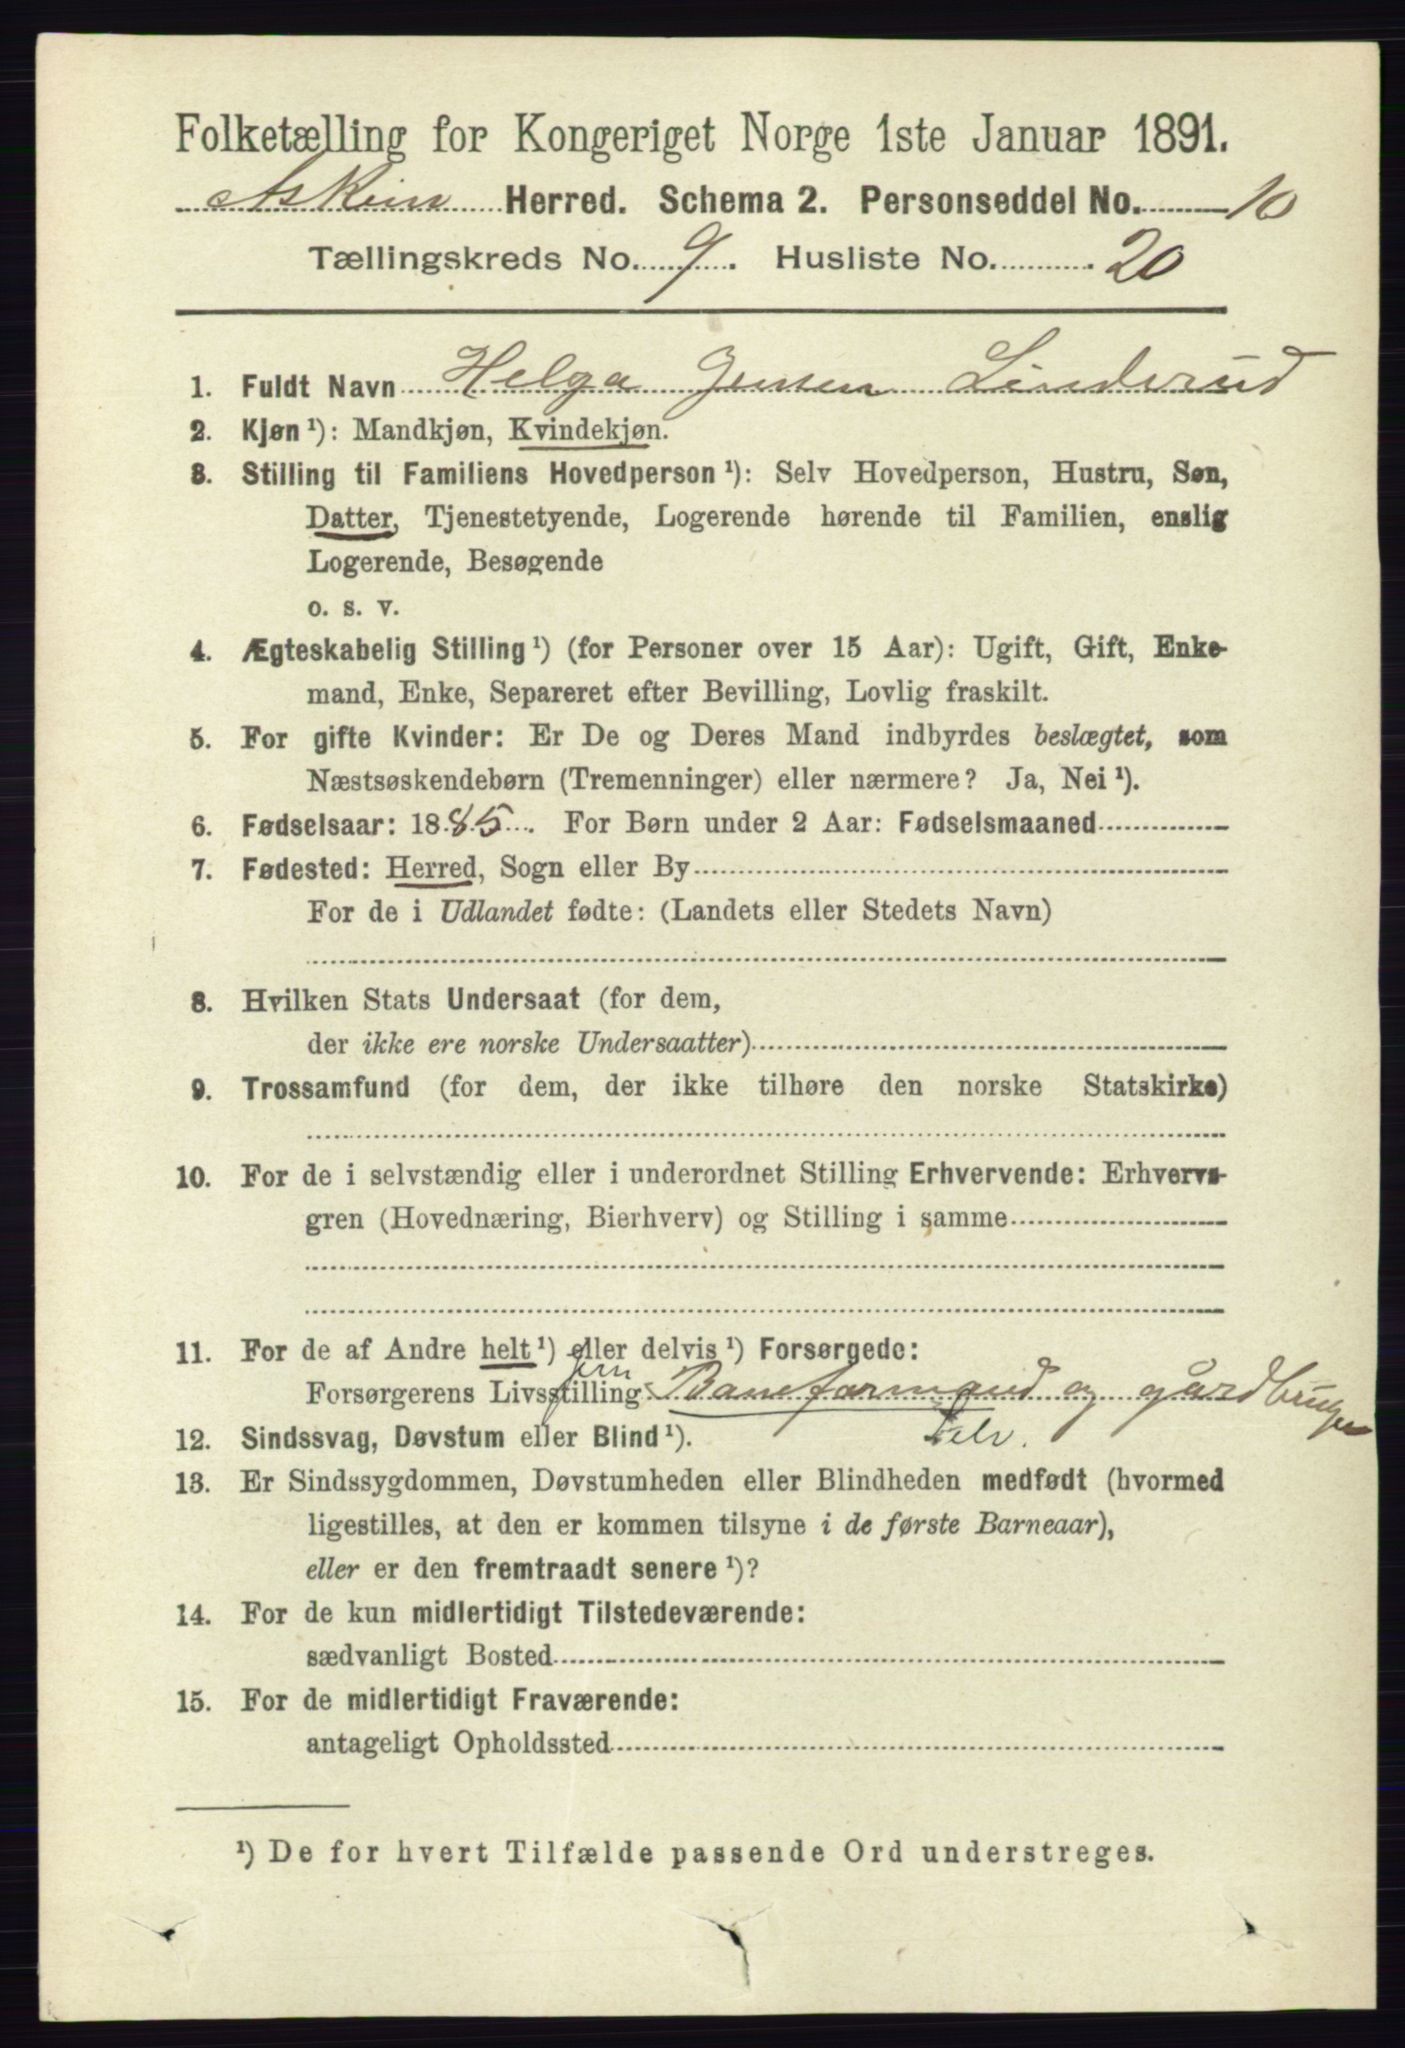 Folketælling for Kongeriget Norge 1ste Januar 1891.
Askim Herred. Schema 2. Personseddel No. 10
Tællingskreds No. 9. Husliste No. 20
1. Fuldt Navn Helga Jensen Linderud
2. Kjøn ¹): Mandkjøn, Kvindekjøn.
3. Stilling til Familiens Hovedperson ¹): Selv Hovedperson, Hustru, Søn,
Datter, Tjenestetyende, Logerende hørende til Familien, enslig
Logerende, Besøgende
o. s. v.
4. Ægteskabelig Stilling ¹) (for Personer over 15 Aar): Ugift, Gift, Enke-
mand, Enke, Separeret efter Bevilling, Lovlig fraskilt.
5. For gifte Kvinder: Er De og Deres Mand indbyrdes beslægtet, som
Næstsøskendebørn (Tremenninger) eller nærmere? Ja, Nei ¹).
6. Fødselsaar: 1885. For Børn under 2 Aar: Fødselsmaaned
7. Fødested: Herred, Sogn eller By
For de i Udlandet fødte: (Landets eller Stedets Navn)
8. Hvilken Stats Undersaat (for dem,
der ikke ere norske Undersaatter)
9. Trossamfund (for dem, der ikke tilhøre den norske Statskirke)
10. For de i selvstændig eller i underordnet Stilling Erhvervende: Erhvervs-
gren (Hovednæring, Bierhverv) og Stilling i samme
11. For de af Andre helt ¹) eller delvis ¹) Forsørgede:
jern
Forsørgerens Livsstilling Baneformand og gårdbruger
12. Sindssvag, Døvstum eller Blind ¹). Selv.
13. Er Sindssygdommen, Døvstumheden eller Blindheden medfødt (hvormed
ligestilles, at den er kommen tilsyne i de første Barneaar),
eller er den fremtraadt senere ¹)?
14. For de kun midlertidigt Tilstedeværende:
sædvanligt Bosted
15. For de midlertidigt Fraværende:
antageligt Opholdssted
¹) De for hvert Tilfælde passende Ord understreges.